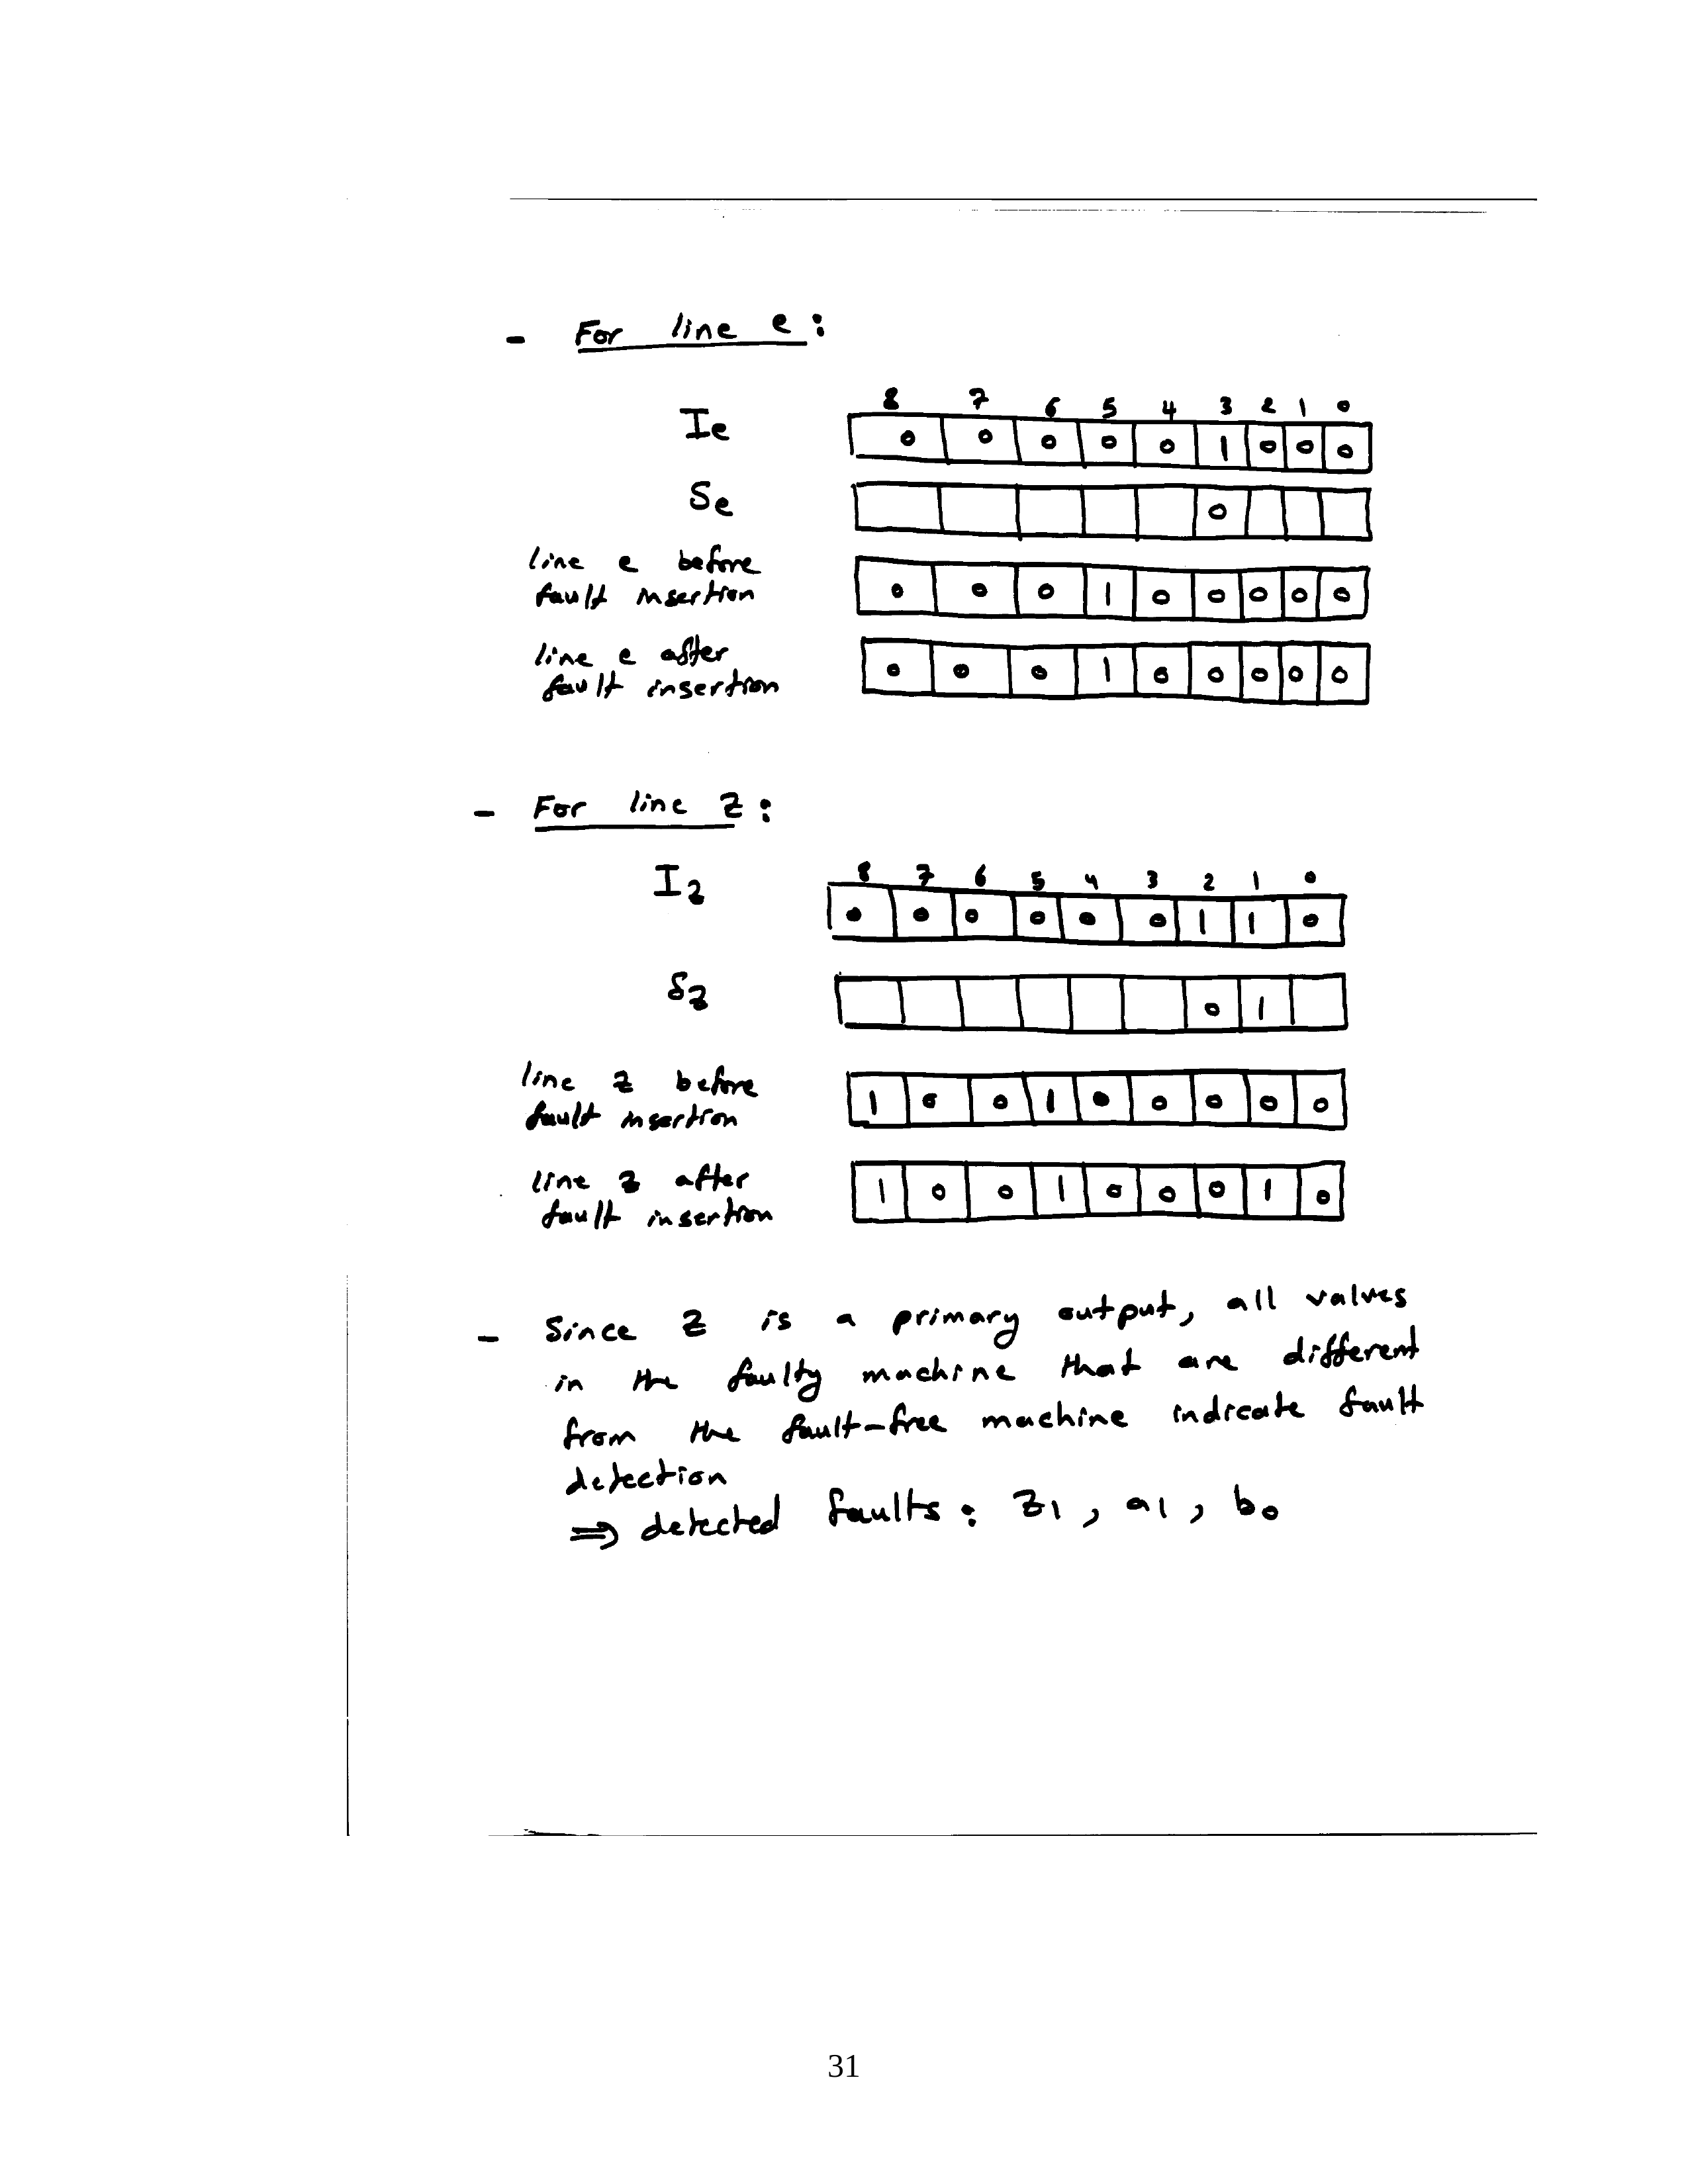 - For line e:
8 7 6 5 4 3 2 1 0
Ie 0 0 0 0 0 1 0 0 0
Se 0
line e before
fault insertion 0 0 0 1 0 0 0 0 0
line e after
fault insertion 0 0 0 1 0 0 0 0 0
- For line Z:
8 7 6 5 4 3 2 1 0
Iz 0 0 0 0 0 0 1 1 0
Sz 0 1
line z before
fault insertion 1 0 0 1 0 0 0 0 0
line z after
fault insertion 1 0 0 1 0 0 0 1 0
- Since Z is a primary output, all values
in the faulty machine that are different
from the fault-free machine indicate fault
detection
⇒ detected faults: Z1, a1, b0
31